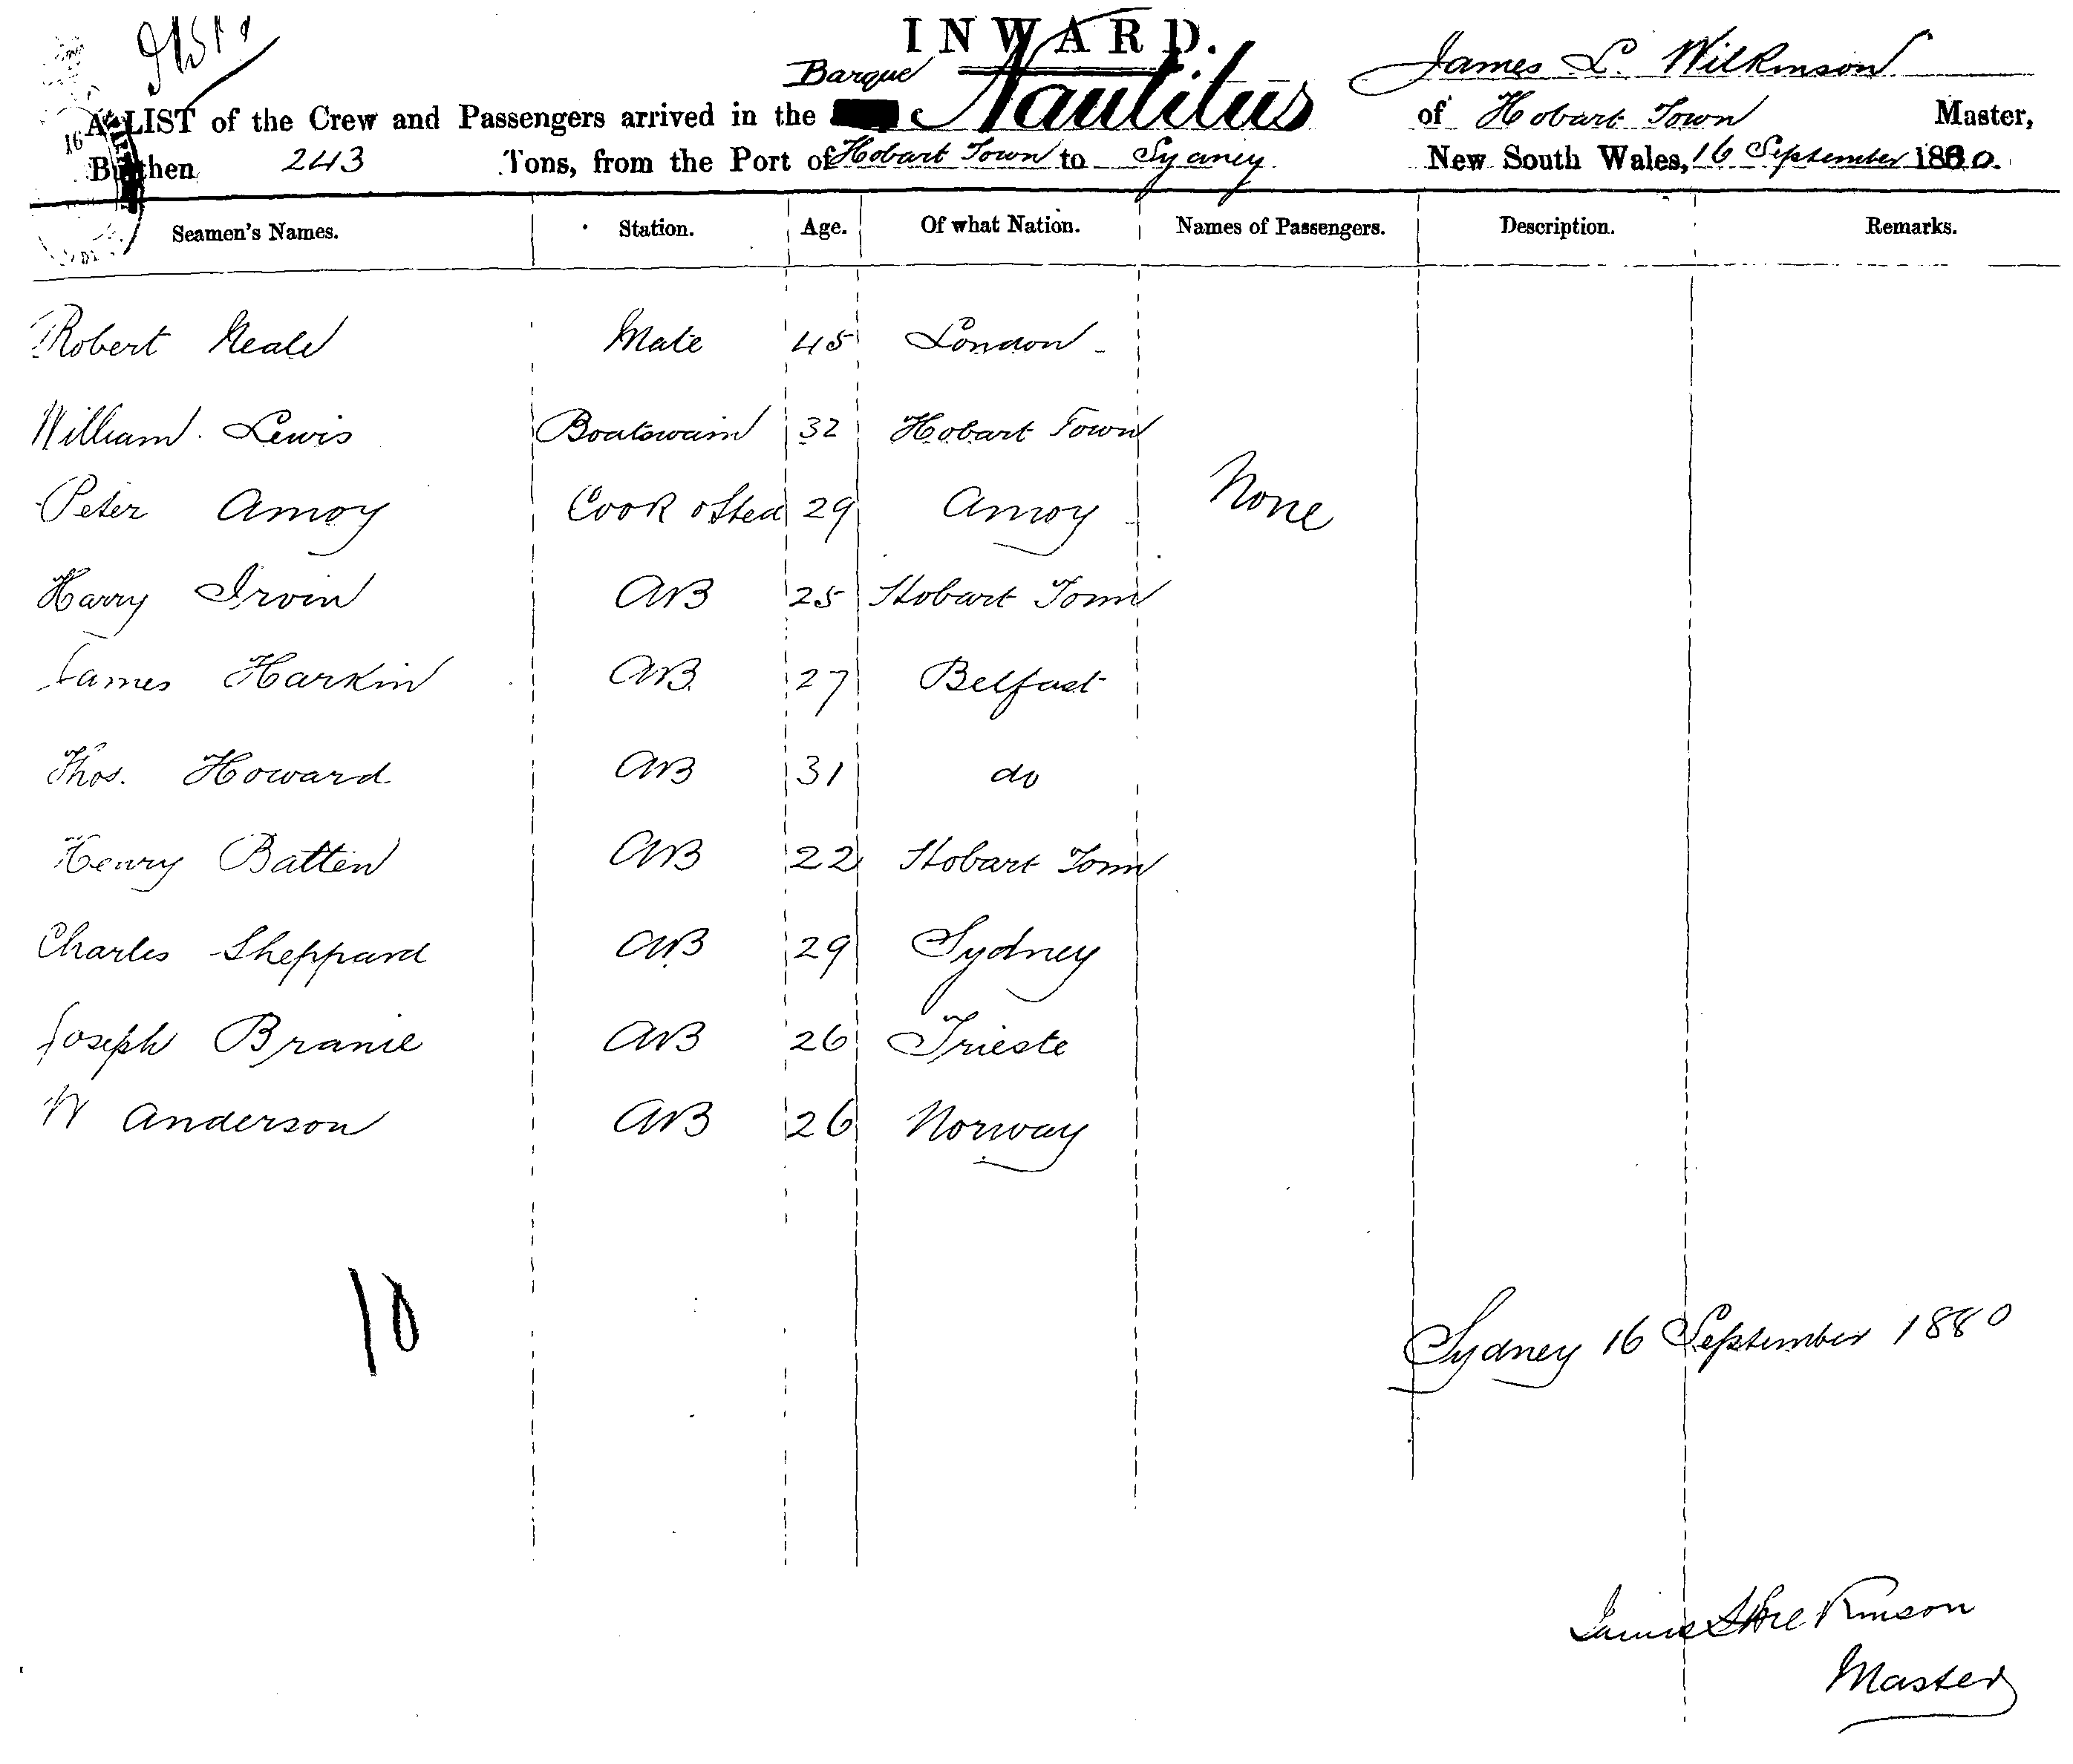 INWARD.
Barque
James L. Wilkinson
A LIST of the Crew and Passengers arrived in the Nautilus of Hobart Town Master,
Burthen 243 Tons, from the Port of Hobart Town to Sydney New South Wales, 16 September 1880.
Seamen's Names. Station. Age. Of what Nation. Names of Passengers. Description. Remarks.
Robert Neale Mate 45 London
William Lewis Boatswain 32 Hobart Town
Peter Amoy Cook & Stew 29 Amoy None
Harry Irvin AB 25 Hobart Town
James Harkin AB 27 Belfast
Thos. Howard AB 31 do
Henry Batten AB 22 Hobart Town
Charles Sheppard AB 29 Sydney
Joseph AB 26 Trieste
W Anderson AB 26 Norway
10
Sydney 16 September 1880
James L Wilkinson
Master